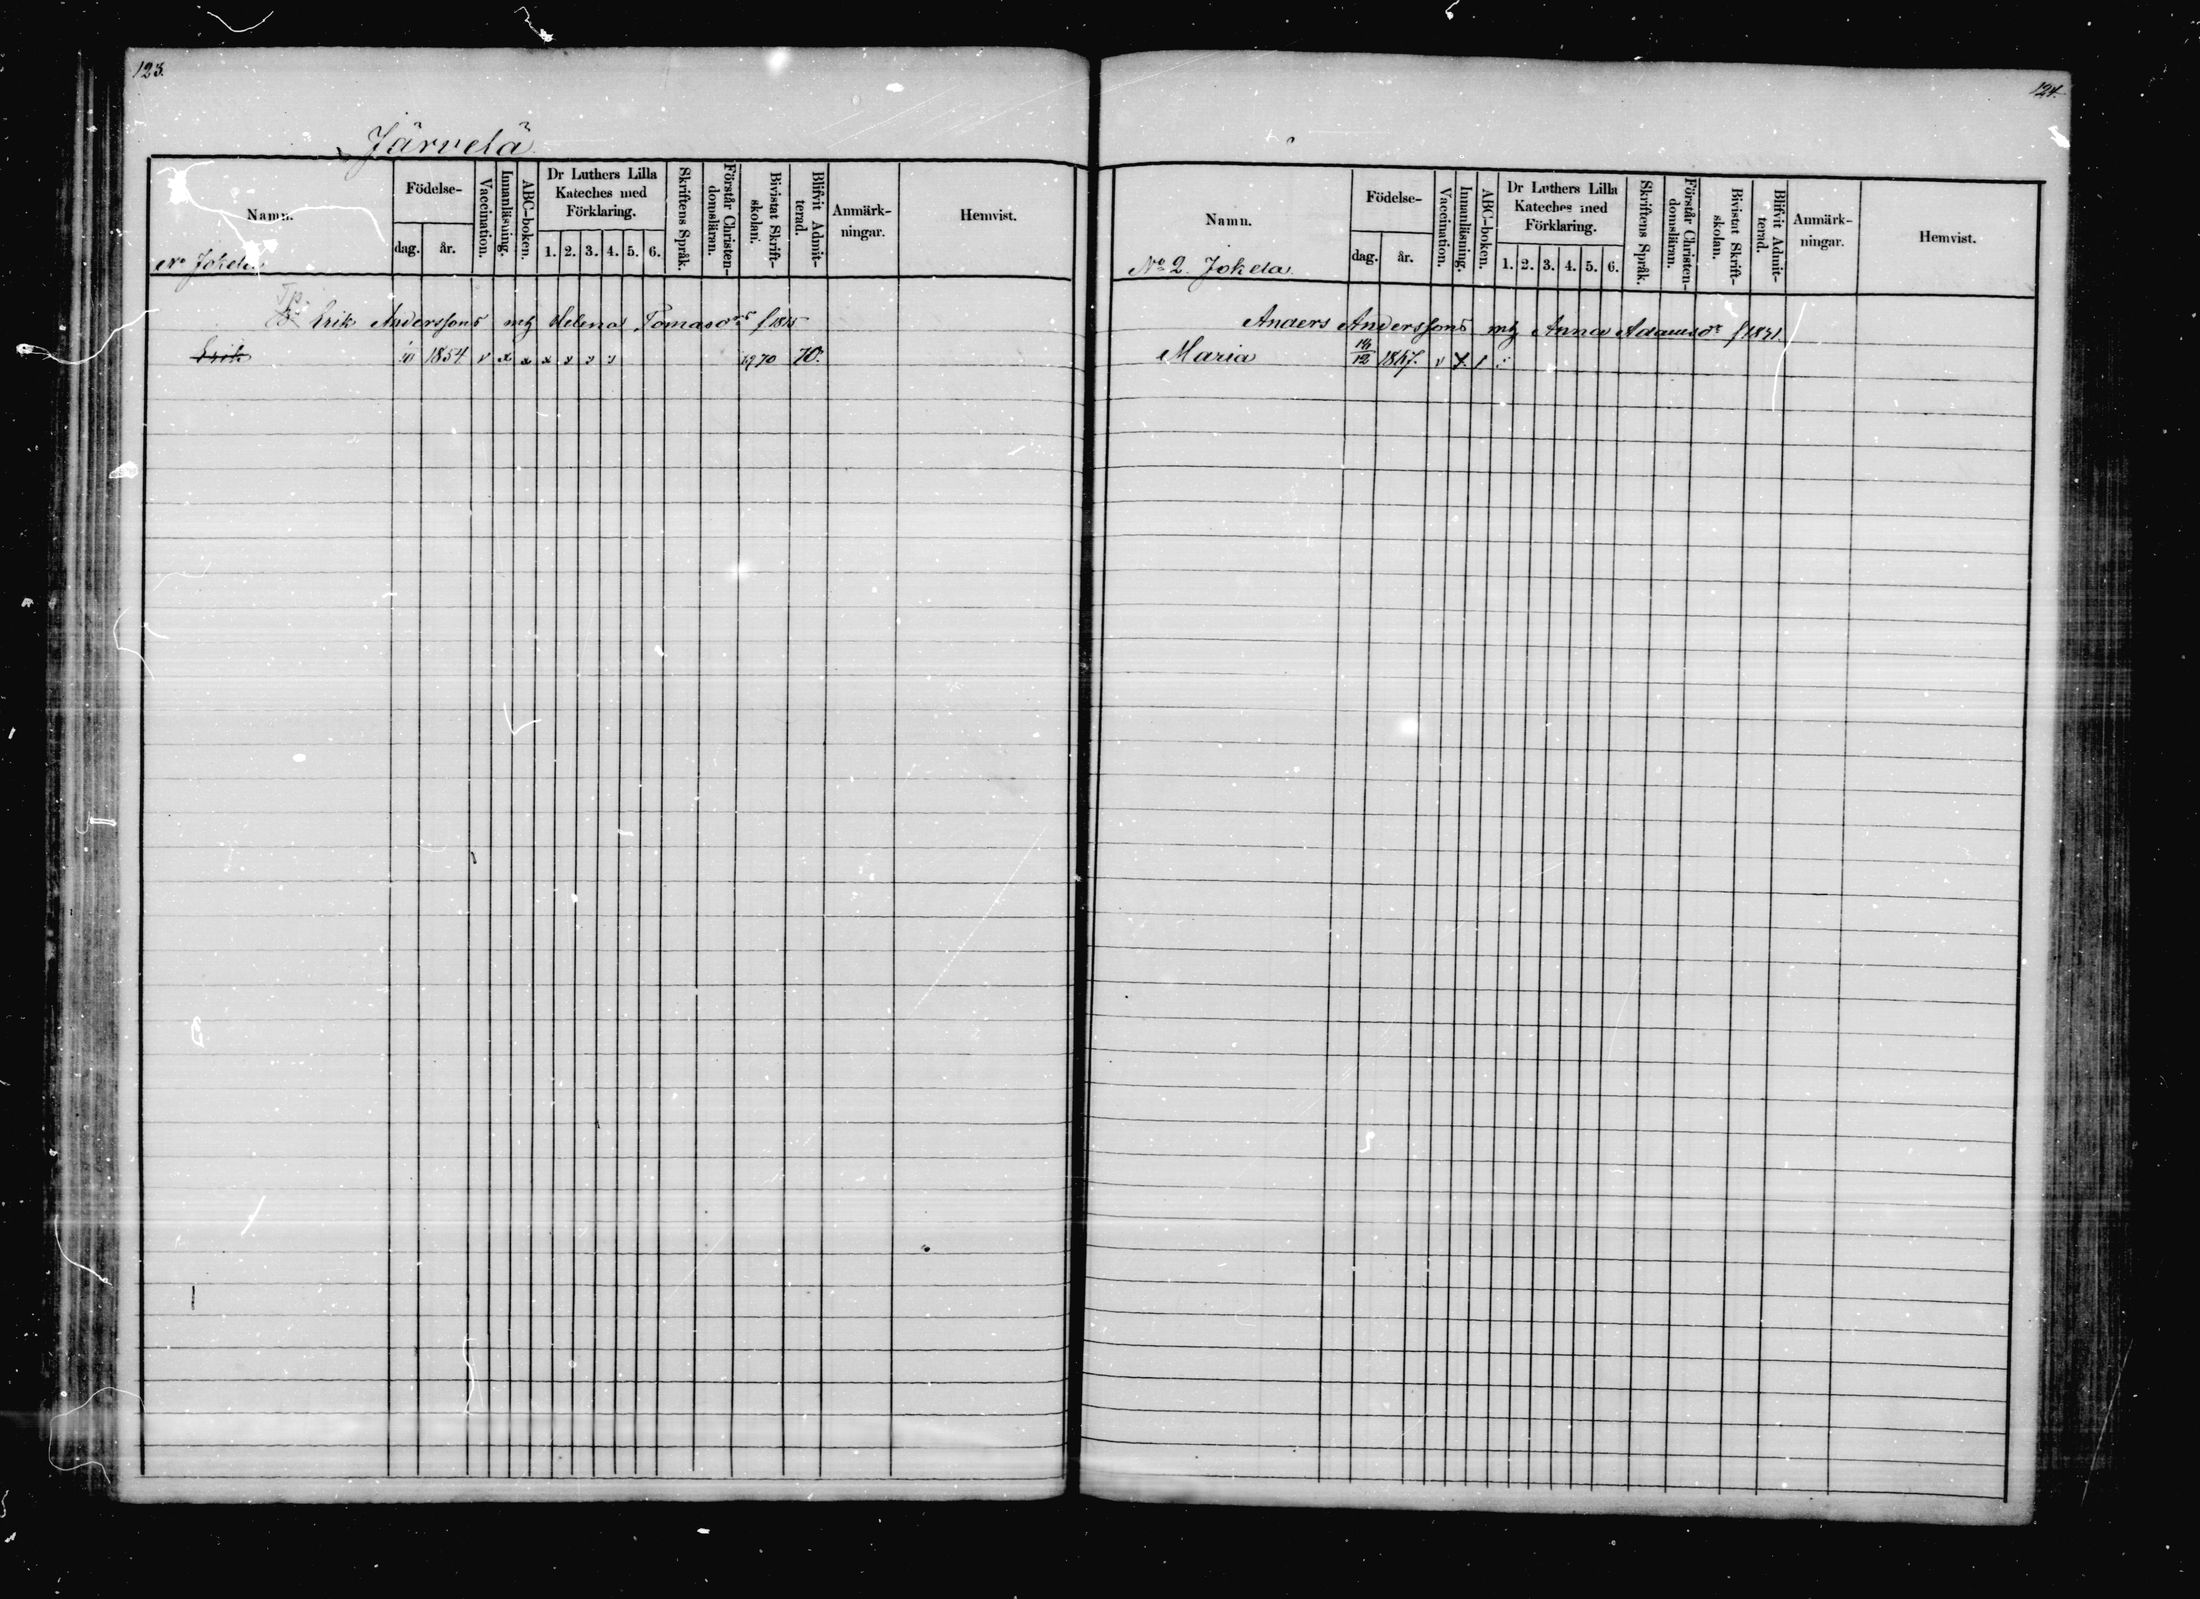 123.
Järvelä
Namn.
Födelse-
dag.
år.
Vaccination.
Innanläsning.
ABC-boken.
Dr Luthers Lilla
Kateches med
Förklaring.
1. 2. 3. 4. 5. 6.
Skriftens Språk.
Förstår Christen-
domsläran.
Bivistat Skrift-
skolan.
Blifvit Admit-
terad.
Anmärk-
ningar.
Hemvist.
No Jokela
Erik Anderssons Helena Tomasdr
Erik 1854 v x x x 1870 70.
124.
Namn.
Födelse-
dag.
år.
Vaccination.
Innanläsning.
ABC-boken.
Dr Luthers Lilla
Kateches med
Förklaring.
1. 2. 3. 4. 5. 6.
Skriftens Språk.
Förstår Christen-
domsläran.
Bivistat Skrift-
skolan.
Blifvit Admit-
terad.
Anmärk-
ningar.
Hemvist.
No 2. Jokela
Anders Anderssons Anna Adamsdr
Maria 12 v